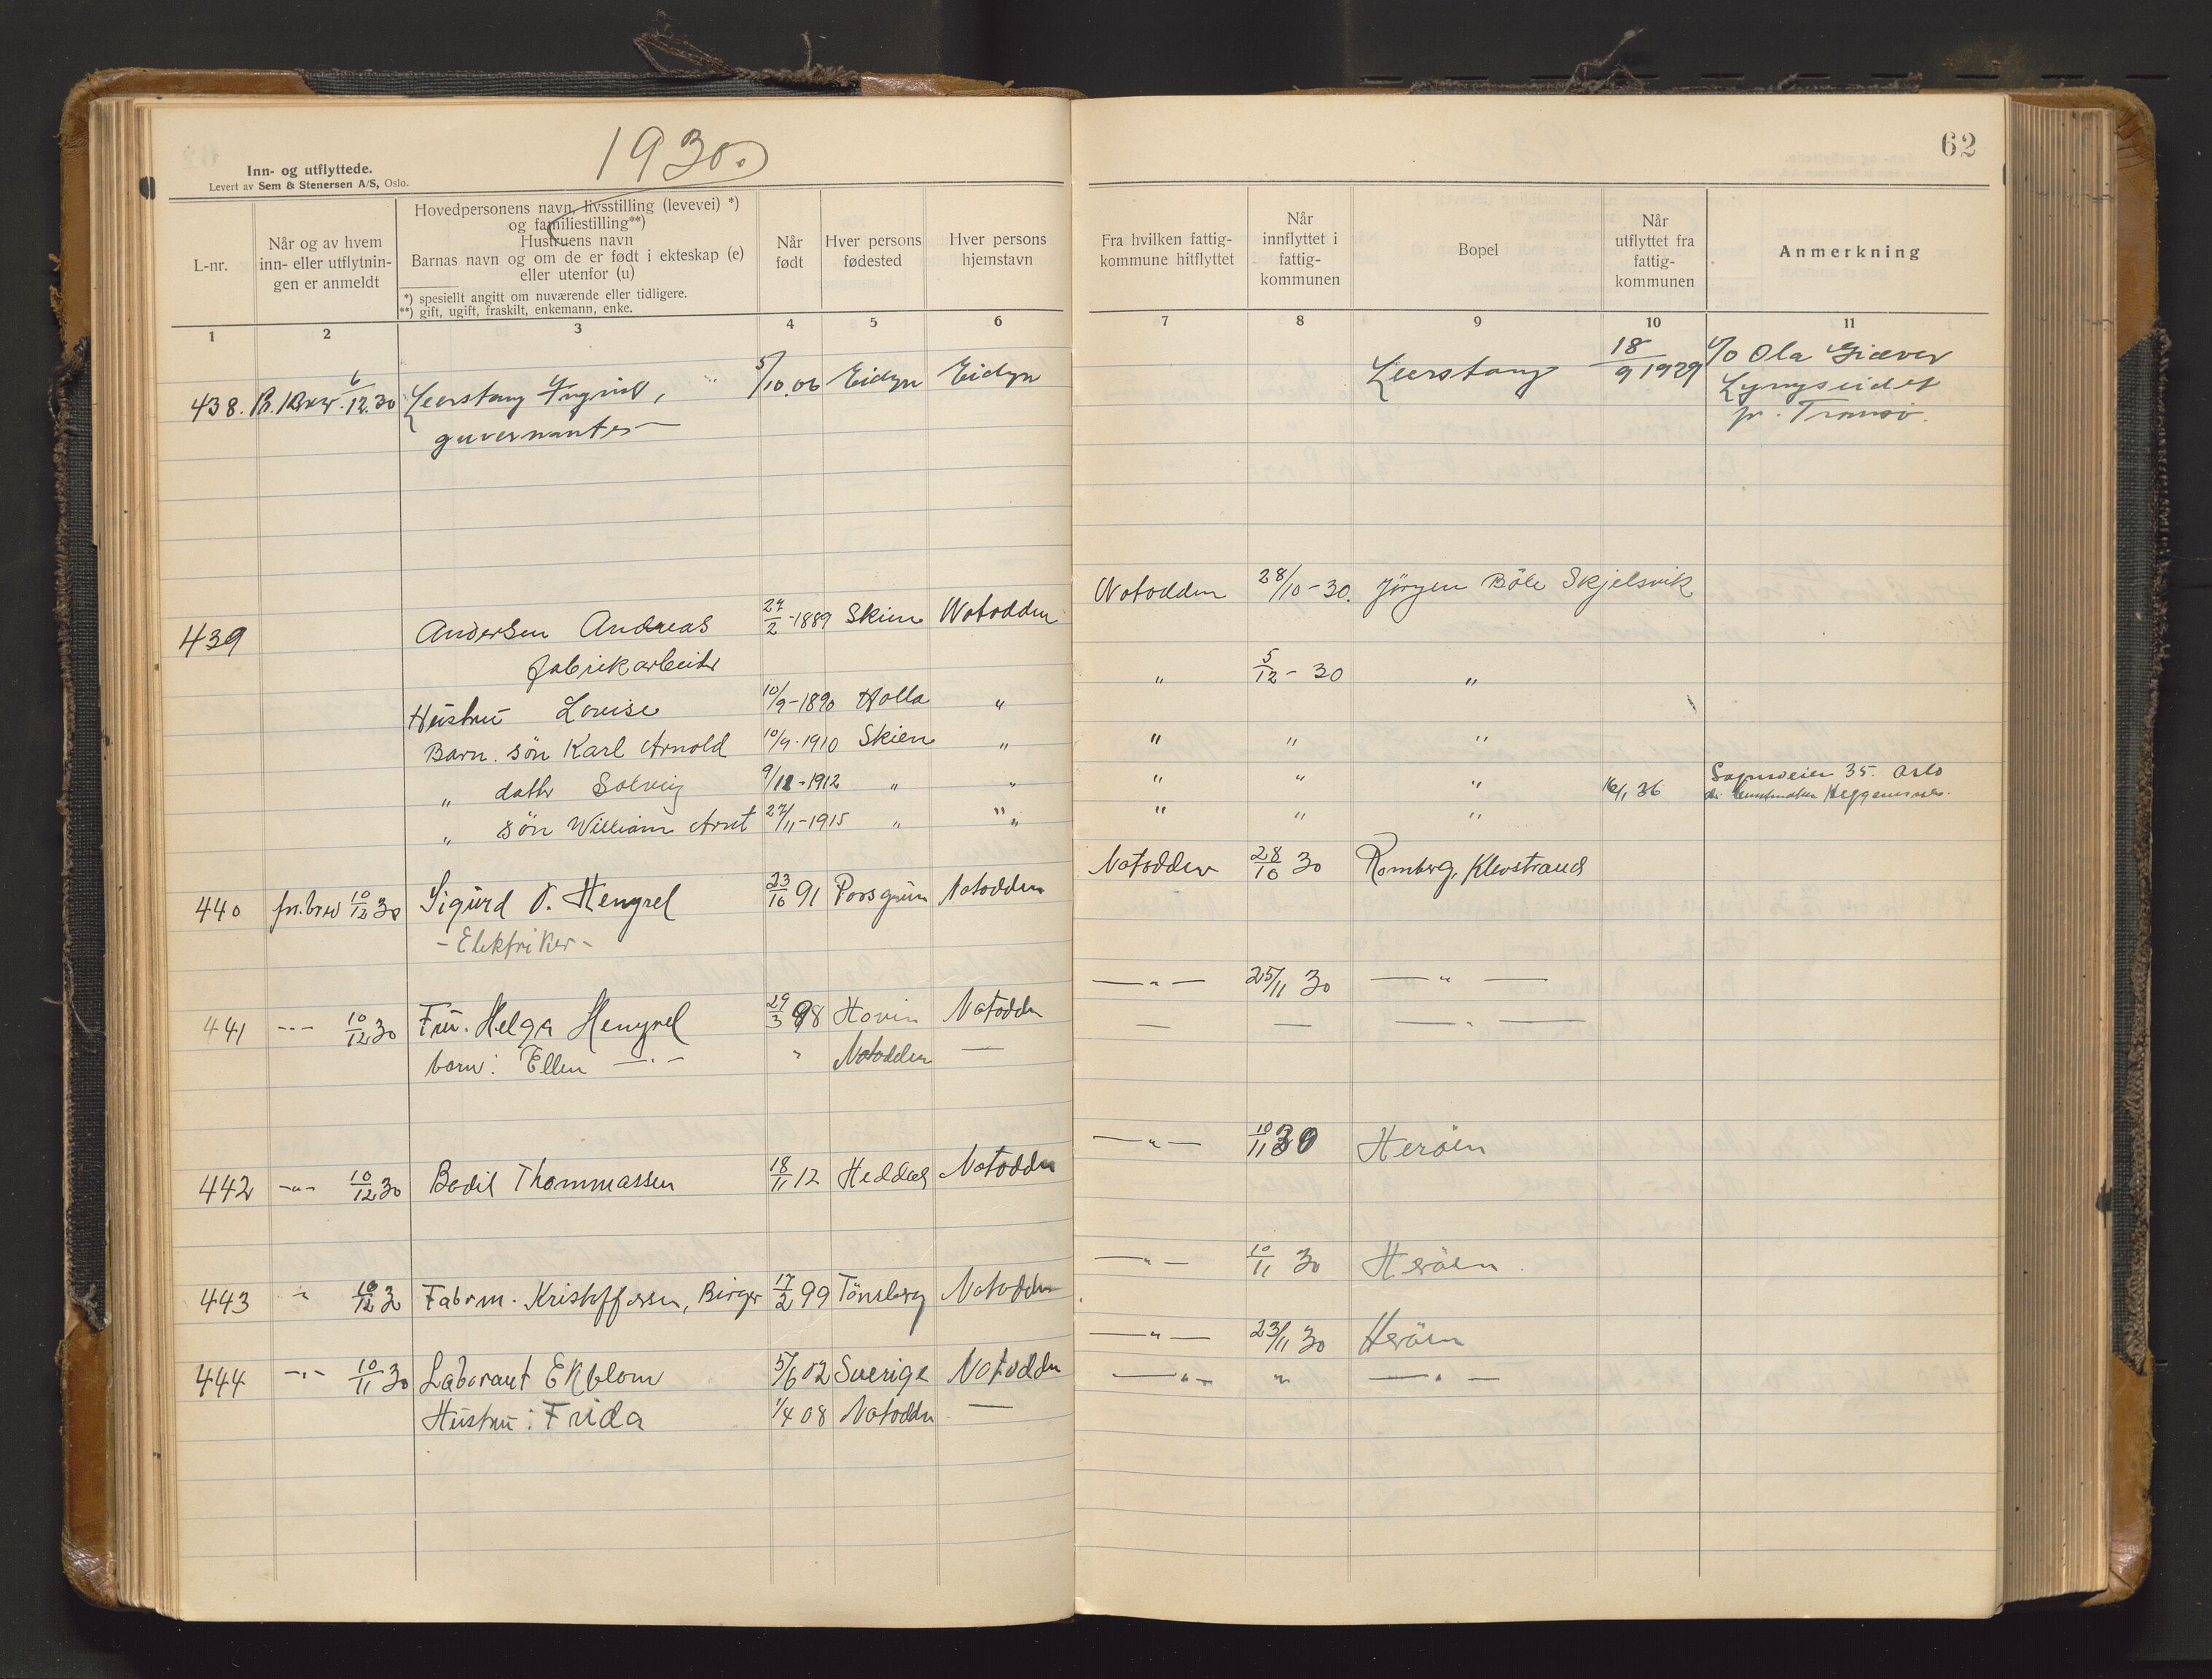 1930.
62
Inn- og utflyttede.
Levert av Sem & Stenersen A/S, Oslo.
L-nr.
Når og av hvem
inn- eller utflytnin-
gen er anmeldt
Hovedpersonens navn, livsstilling (levevei) *)
og familiestilling**)
Hustruens navn
Barnas navn og om de er født i ekteskap (e)
eller utenfor (u)
*) spesiellt angitt om nuværende eller tidligere.
**) gift, ugift, fraskilt, enkemann, enke.
Når
født
Hver persons
fødested
Hver persons
hjemstavn
Fra hvilken fattig-
kommune hitflyttet
Når
innflyttet i
fattig-
kommunen
Bopel
Når
utflyttet fra
fattig-
kommunen
Anmerkning
1 2 3 4 5 6 7 8 9 10 11
438. Pr. brev. 6/12.30 Leerstang Yngrid, 5/10.06 Eidgn Eidgn Leerstang 18/9 1929 c/o Ola Giæver
guvernante Lyngseidet
pr. Tromsö.
439 Andersen Andreas 24/2-1889 Skien Notodden Notodden 28/10-30. Jörgen Böle Skjelsvik
fabrikarbeider
Hustru Lovise 10/9-1890 Holla " " 5/12-30 "
Barn. sön Karl Arnold 10/9-1910 Skien " " " "
" datter Solveig 9/12-1912 " " " " " 16/1 36 Sognsveien 35. Oslo
Heggenes
" sön William Arnt 27/11-1915 " " " " "
440 pr. brev 10/12 30 Sigurd O. Hengrel 23/10 91 Porsgrun Notodden Notodden 28/10 30 Romberg, Klevstrand
- Elektriker -
441 -"- 10/12 30 Fru. Helga Hengrel 29/3 98 Hovin Notodden —"— 25/11 30 —"—
barn: Ellen —"— " Notodden — — — —"—
442 -"- 10/12 30 Bodil Thommassen 18/11 12 Heddal Notodden —"— 10/11 30 Heröen
443 " 10/12 30 Fabrm. Kristoffersen, Birger 17/2 99 Tönsberg Notodden —"— 10/11 30 Heröen.
444 -"- 10/11 30 Laborant Ekblom 5/6 02 Sverige Notodden —"— 23/11 30 Heröen
Hustru: Frida 1/4 08 Notodden — —"— " —"—